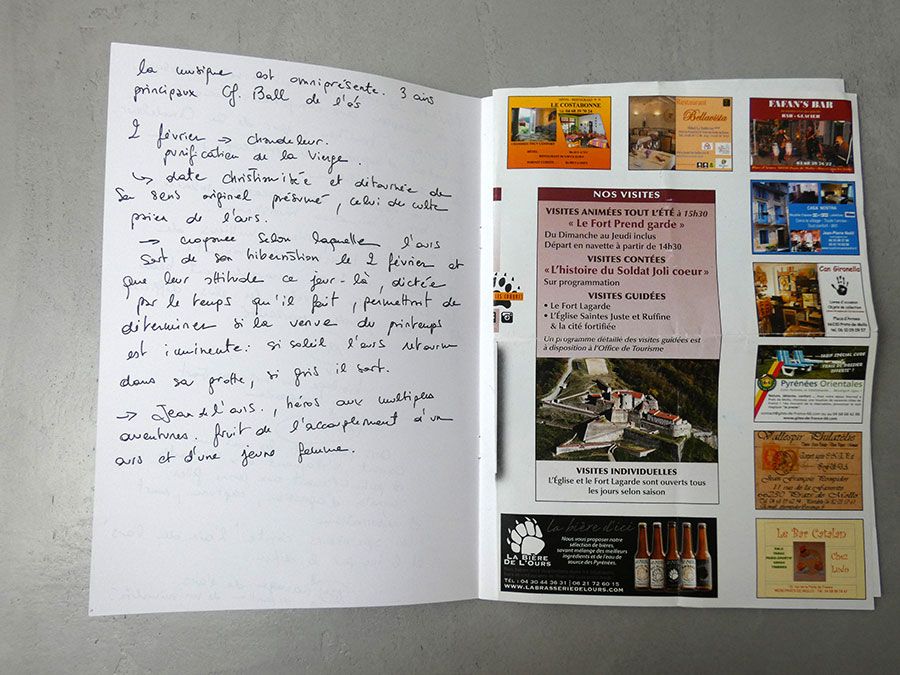 la musique est omniprésente. 3 airs
principaux Cf. Ball de l'ós
2 février → chandeleur.
purification de la Vierge.
↳ date christianisée et détournée de
Son sens originel présumé, celui du culte
païen de l'ours.
→ croyance selon laquelle l'ours
sort de son hibernation le 2 février et
que leur attitude ce jour-là, dictée
par le temps qu'il fait, permettront de
déterminer si la venue du printemps
est imminente: si soleil l'ours retourne
dans sa grotte, si gris il sort.
→ Jean de l'ours, héros aux multiples
aventures. fruit de l'accouplement d'un
ours et d'une jeune femme.
HÔTEL - RESTAURANT
LE COSTABONNE
Restaurant
Bellavista
FAFAN'S BAR
BAR - GLACIER
NOS VISITES
VISITES ANIMÉES TOUT L'ÉTÉ à 15h30
« Le Fort Prend garde »
Du Dimanche au Jeudi inclus
Départ en navette à partir de 14h30
VISITES CONTÉES
«L'histoire du Soldat Joli coeur»
Sur programmation
VISITES GUIDÉES
• Le Fort Lagarde
• L'Église Saintes Juste et Ruffine
& la cité fortifiée
Un programme détaillé des visites guidées est
à disposition à l'Office de Tourisme
VISITES INDIVIDUELLES
L'Église et le Fort Lagarde sont ouverts tous
les jours selon saison
CASA NOSTRA
Can Gironella
Livres d'occasion
Objets de collection
Place d'Armes
TARIF SPECIAL CURE
FRAIS DE DOSSIER
OFFERTS !
Pyrénées Orientales
Vallespir Philatélie
Jean François Pompidor
11 rue de la
66230 Prats de Mollo
Le Bar Catalan
Chez
Ludo
la bière d'ici
Nous vous proposer notre
sélection de bières,
savant mélange des meilleurs
ingrédients et de l'eau de
source des Pyrénées.
LA BIÈRE
DE L'OURS
TÉL : 04 30 44 36 31 | 06 21 72 60 15
WWW.LABRASSERIEDELOURS.COM